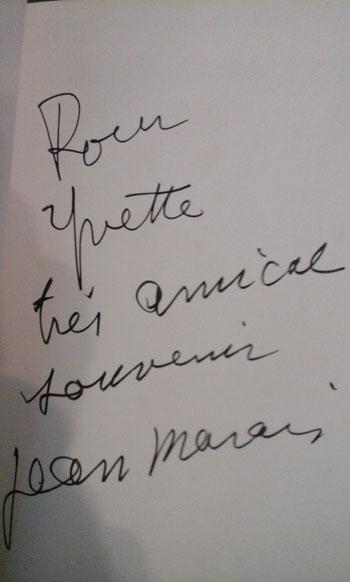 Pour
Yvette
très amical
souvenir
Jean Marais